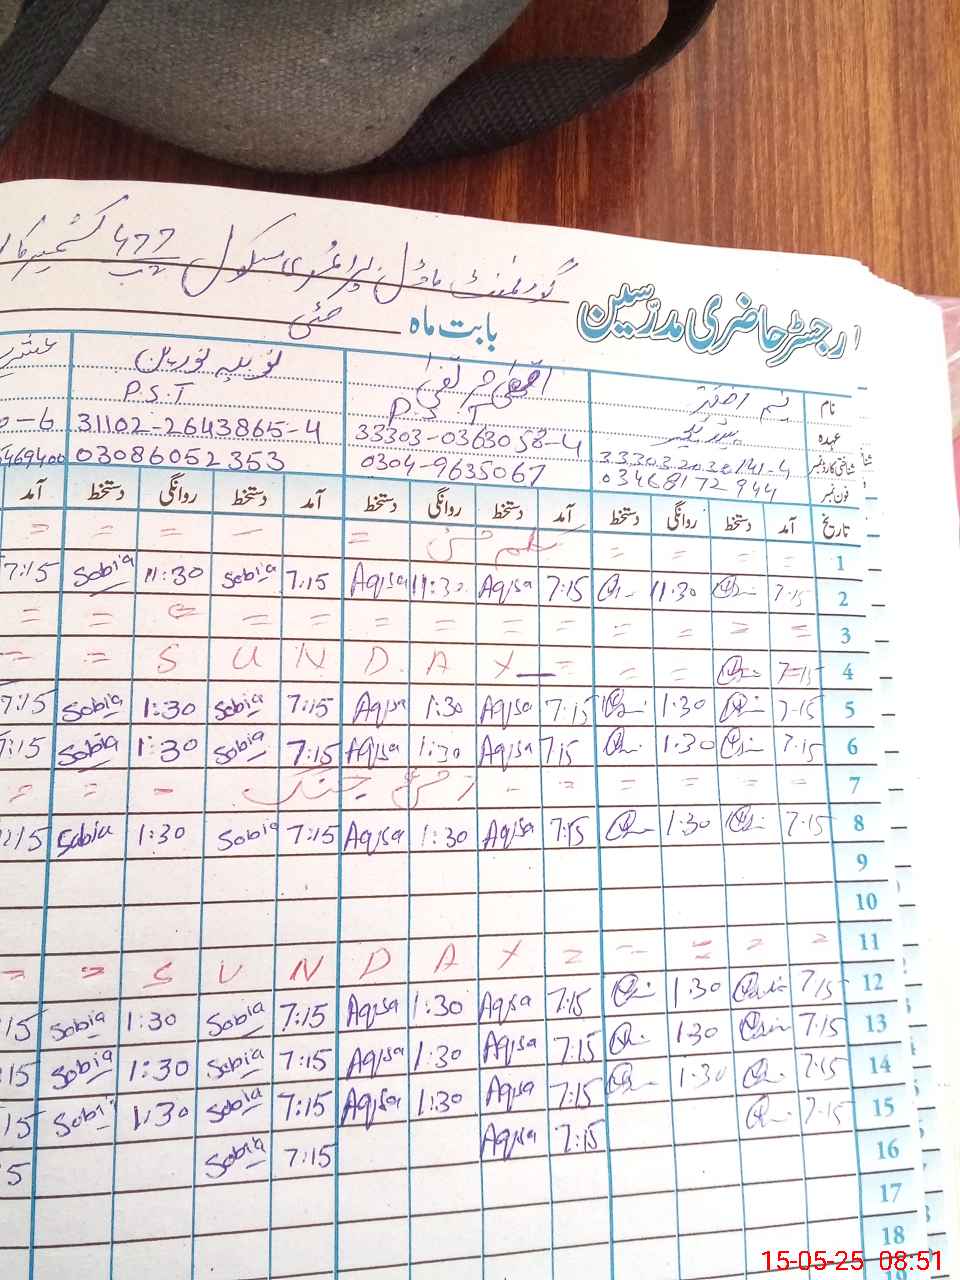 گورنمنٹ ماڈل پرائمری سکول 477
رجسٹر حاضری مدرسین
بابت ماہ مئی
نام
عہدہ P.S.T P.S.T
شناختی کارڈ نمبر 33303-0363058-4 31102-2643865-4
فون نمبر 03468172944 0304-9635067 03086052353 469400
تاریخ آمد دستخط روانگی دستخط آمد دستخط روانگی دستخط آمد دستخط روانگی دستخط آمد
1 = = = = = = = =
2 7:15 11:30 7:15 Aqsa 11:30 Aqsa 7:15 Sobia 11:30 Sobia 7:15
3 = = = = = = = = = = = = =
4 7=15 = = = S U N D A Y = =
5 7:15 1:30 7:15 Aqsa 1:30 Aqsa 7:15 Sobia 1:30 Sobia 7:15
6 7:15 1:30 7:15 Aqsa 1:30 Aqsa 7:15 Sobia 1:30 Sobia 7:15
7 = = = = = - جنگ - = =
8 7:15 1:30 7:15 Aqsa 1:30 Aqsa 7:15 Sobia 1:30 Sobia 7:15
9
10
11 = = = = = S U N D A Y = =
12 7:15 1:30 7:15 Aqsa 1:30 Aqsa 7:15 Sobia 1:30 Sobia :15
13 7:15 1:30 7:15 Aqsa 1:30 Aqsa 7:15 Sobia 1:30 Sobia :15
14 7:15 1:30 7:15 Aqsa 1:30 Aqsa 7:15 Sobia 1:30 Sobia 15
15 7:15 7:15 Aqsa 7:15 Sobia 5
16
17
18
19
15-05-25 08:51